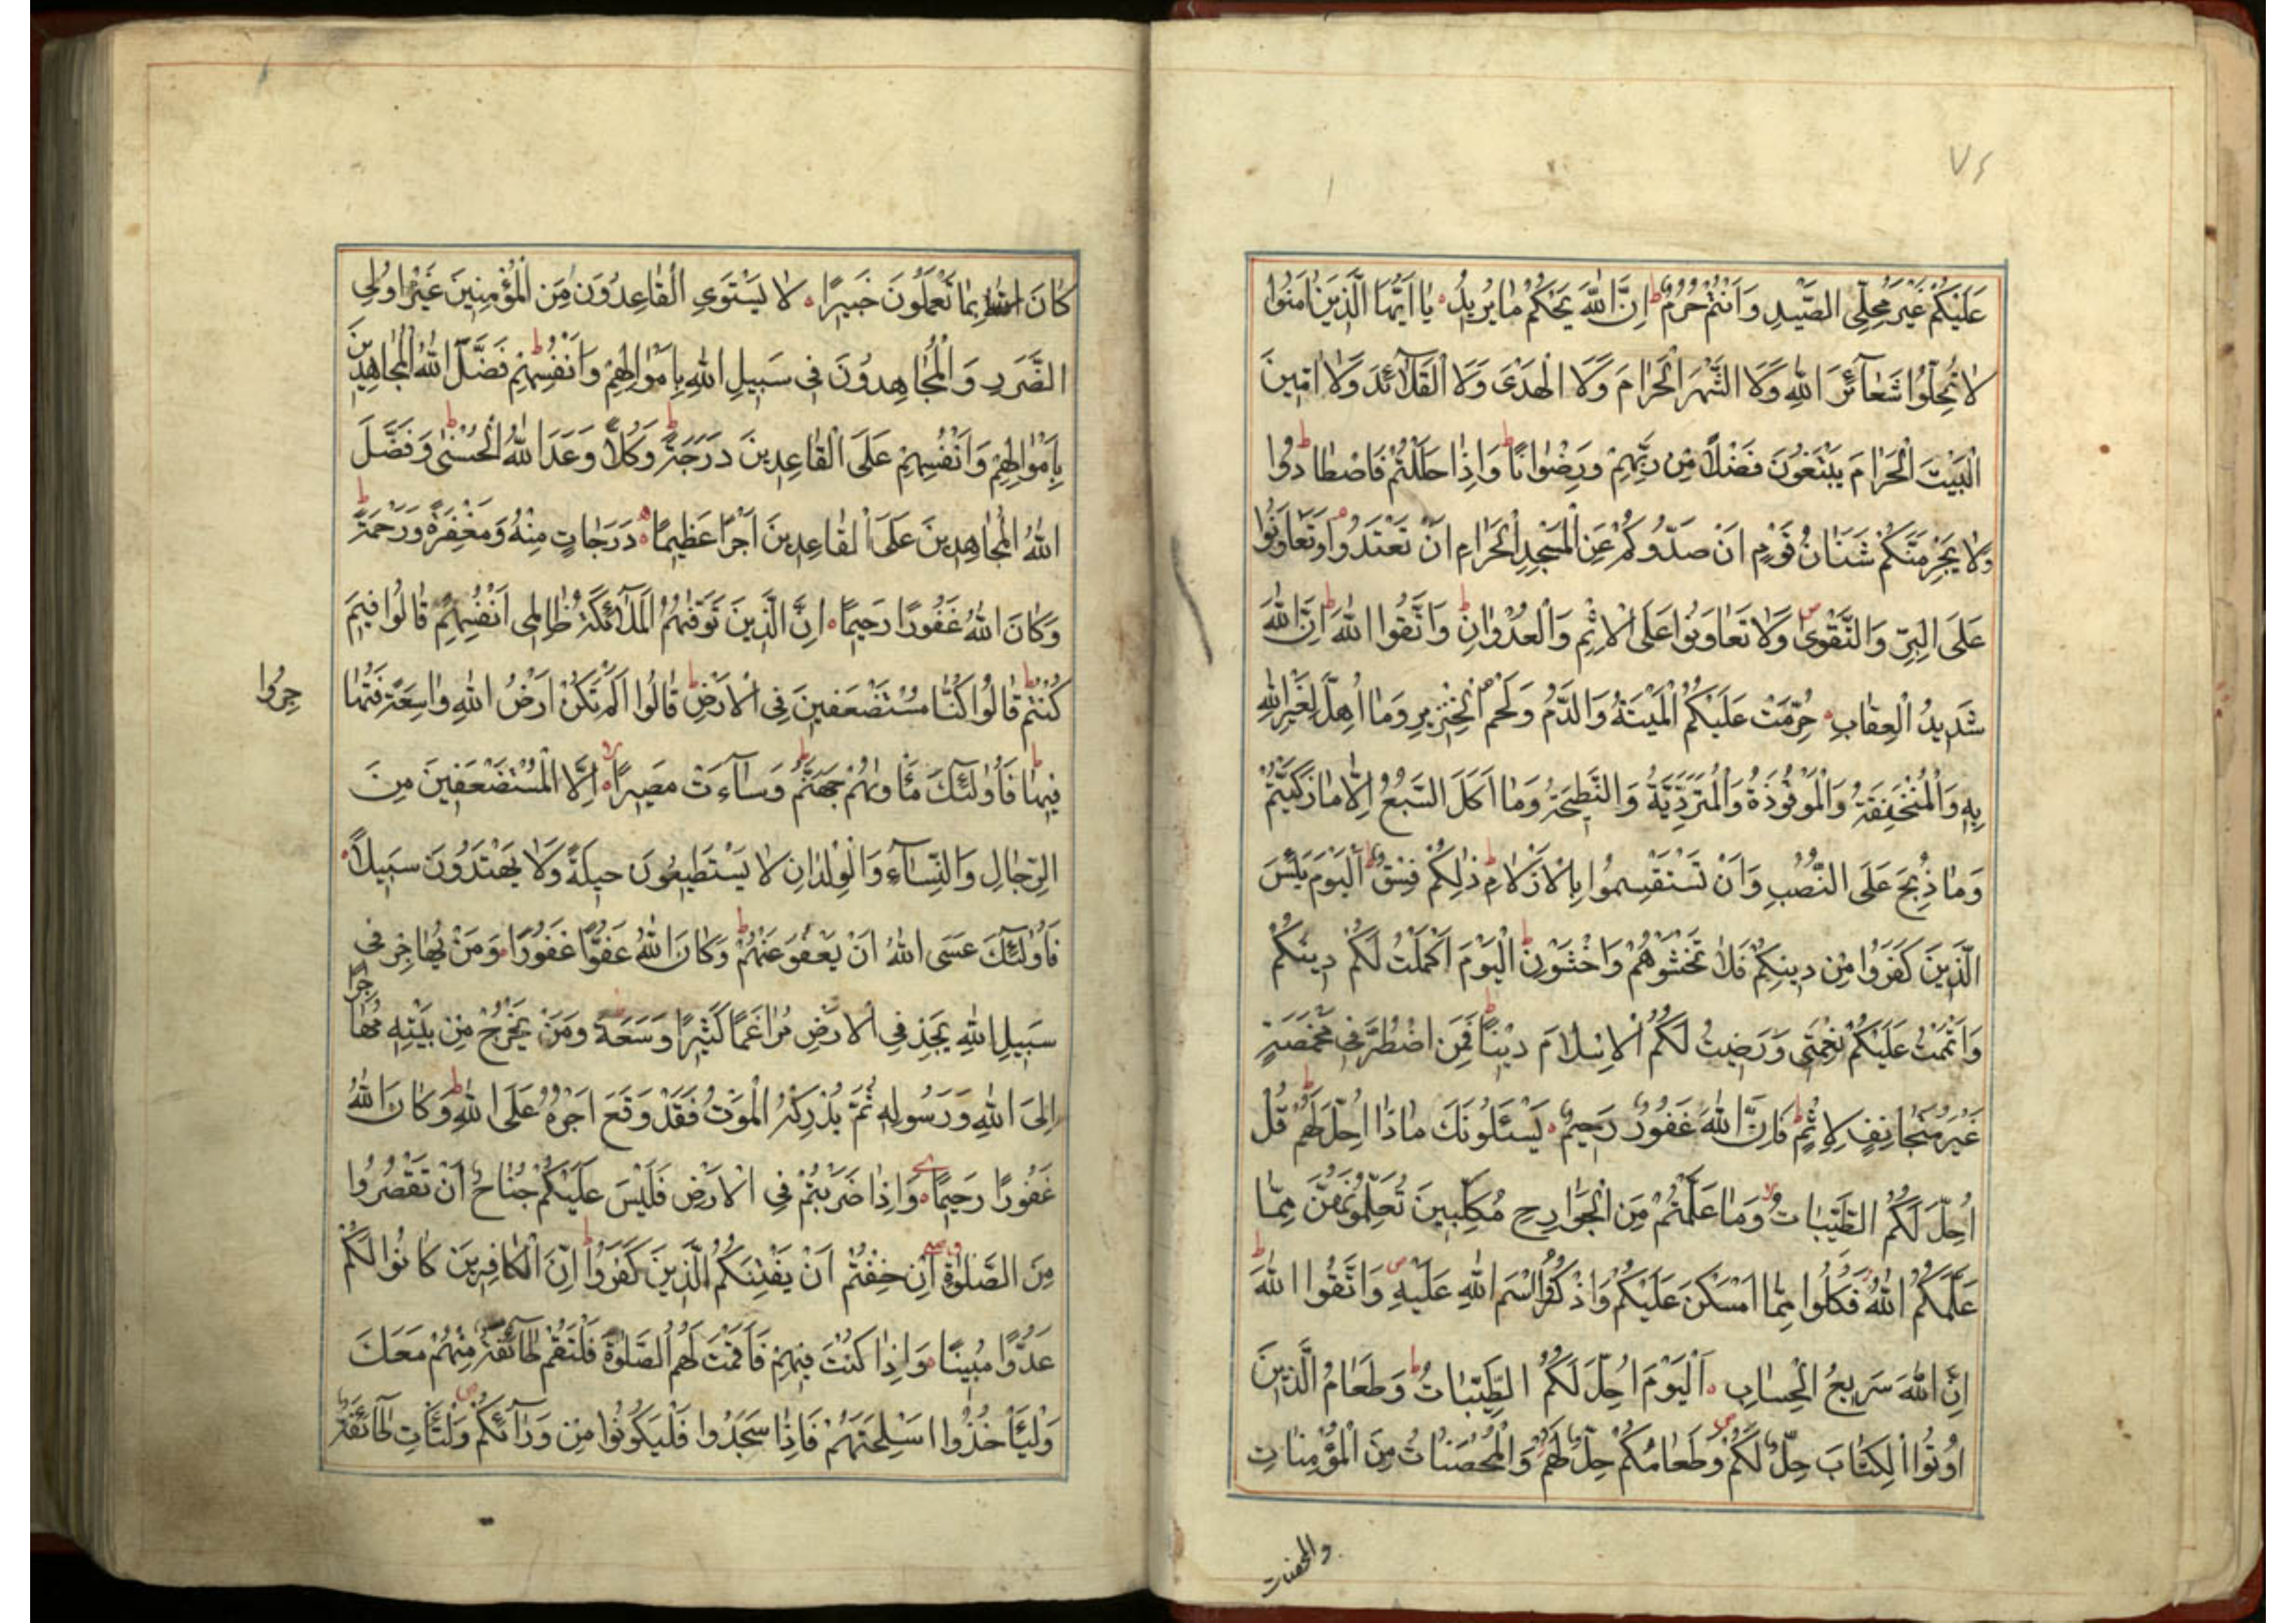 ٧٤
عَلَيْكُمْ غَيْرَ مُحِلِّي الصَّيْدِ وَاَنْتُمْ حُرُمٌ ط اِنَّ اللّٰهَ يَحْكُمُ مٰا يُرِيدُ ه يٰا اَيُّهَا الَّذِينَ اٰمَنُوا
لٰا تُحِلُّوا شَعٰٓائِرَ اللّٰهِ وَلَا الشَّهْرَ الْحَرٰامَ وَلَا الْهَدْىَ وَلَا الْقَلٰٓائِدَ وَلٰا اٰمِّينَ
الْبَيْتَ الْحَرٰامَ يَبْتَغُونَ فَضْلاً مِنْ رَبِّهِمْ وَرِضْوٰاناً ط وَاِذٰا حَلَلْتُمْ فَاصْطٰادُوا ط
وَلٰا يَجْرِمَنَّكُمْ شَنَاٰنُ قَوْمٍ اَنْ صَدُّوكُمْ عَنِ الْمَسْجِدِ الْحَرٰامِ اَنْ تَعْتَدُوا وَتَعٰاوَنُوا
عَلَى الْبِرِّ وَالتَّقْوٰى ص وَلٰا تَعٰاوَنُوا عَلَى الْاِثْمِ وَالْعُدْوٰانِ ط وَاتَّقُوا اللّٰهَ ط اِنَّ اللّٰهَ
شَدِيدُ الْعِقٰابِ ه حُرِّمَتْ عَلَيْكُمُ الْمَيْتَةُ وَالدَّمُ وَلَحْمُ الْخِنْزِيرِ وَمٰا اُهِلَّ لِغَيْرِ اللّٰهِ
بِهِ وَالْمُنْخَنِقَةُ وَالْمَوْقُوذَةُ وَالْمُتَرَدِّيَةُ وَالنَّطِيحَةُ وَمٰا اَكَلَ السَّبُعُ اِلّٰا مٰا ذَكَّيْتُمْ
وَمٰا ذُبِحَ عَلَى النُّصُبِ وَاَنْ تَسْتَقْسِمُوا بِالْاَزْلٰامِ ط ذٰلِكُمْ فِسْقٌ ط اَلْيَوْمَ يَئِسَ
الَّذِينَ كَفَرُوا مِنْ دِينِكُمْ فَلٰا تَخْشَوْهُمْ وَاخْشَوْنِ ط اَلْيَوْمَ اَكْمَلْتُ لَكُمْ دِينَكُمْ
وَاَتْمَمْتُ عَلَيْكُمْ نِعْمَتِى وَرَضِيتُ لَكُمُ الْاِسْلٰامَ دِيناً ط فَمَنِ اضْطُرَّ فِى مَخْمَصَةٍ
غَيْرَ مُتَجٰانِفٍ لِاِثْمٍ فَاِنَّ اللّٰهَ غَفُورٌ رَحِيمٌ ه يَسْئَلُونَكَ مٰاذٰا اُحِلَّ لَهُمْ ط قُلْ
اُحِلَّ لَكُمُ الطَّيِّبٰاتُ لا وَمٰا عَلَّمْتُمْ مِنَ الْجَوٰارِحِ مُكَلِّبِينَ تُعَلِّمُونَهُنَّ مِمّٰا
عَلَّمَكُمُ اللّٰهُ فَكُلُوا مِمّٰا اَمْسَكْنَ عَلَيْكُمْ وَاذْكُرُوا اسْمَ اللّٰهِ عَلَيْهِ ص وَاتَّقُوا اللّٰهَ ط
اِنَّ اللّٰهَ سَرِيعُ الْحِسٰابِ ه اَلْيَوْمَ اُحِلَّ لَكُمُ الطَّيِّبٰاتُ ط وَطَعٰامُ الَّذِينَ
اُوتُوا الْكِتٰابَ حِلٌّ لَكُمْ ص وَطَعٰامُكُمْ حِلٌّ لَهُمْ وَالْمُحْصَنٰاتُ مِنَ الْمُؤْمِنٰاتِ
والمحصنات
كٰانَ اللّٰهَ بِمٰا تَعْمَلُونَ خَبِيرًا ه لٰا يَسْتَوِى الْقٰاعِدُونَ مِنَ الْمُؤْمِنِينَ غَيْرُ اُولِى
الضَّرَرِ وَالْمُجٰاهِدُونَ فِى سَبِيلِ اللّٰهِ بِاَمْوٰالِهِمْ وَاَنْفُسِهِمْ ط فَضَّلَ اللّٰهُ الْمُجٰاهِدِينَ
بِاَمْوٰالِهِمْ وَاَنْفُسِهِمْ عَلَى الْقٰاعِدِينَ دَرَجَةً ط وَكُلاًّ وَعَدَ اللّٰهُ الْحُسْنٰى ط وَفَضَّلَ
اللّٰهُ الْمُجٰاهِدِينَ عَلَى الْقٰاعِدِينَ اَجْرًا عَظِيمًا ه دَرَجٰاتٍ مِنْهُ وَمَغْفِرَةً وَرَحْمَةً ط
وَكٰانَ اللّٰهُ غَفُورًا رَحِيمًا ه اِنَّ الَّذِينَ تَوَفّٰهُمُ الْمَلٰٓائِكَةُ ظٰالِمِى اَنْفُسِهِمْ قٰالُوا فِيمَ
كُنْتُمْ ط قٰالُوا كُنّٰا مُسْتَضْعَفِينَ فِى الْاَرْضِ ط قٰالُوا اَلَمْ تَكُنْ اَرْضُ اللّٰهِ وٰاسِعَةً فَتُهٰا
جِرُوا
فِيهٰا ط فَاُولٰٓئِكَ مَأْوٰىهُمْ جَهَنَّمُ ط وَسٰآءَتْ مَصِيرًا ه لا اِلَّا الْمُسْتَضْعَفِينَ مِنَ
الرِّجٰالِ وَالنِّسٰآءِ وَالْوِلْدٰانِ لٰا يَسْتَطِيعُونَ حِيلَةً وَلٰا يَهْتَدُونَ سَبِيلاً ه
فَاُولٰٓئِكَ عَسَى اللّٰهُ اَنْ يَعْفُوَ عَنْهُمْ ط وَكٰانَ اللّٰهُ عَفُوًّا غَفُورًا ه وَمَنْ يُهٰاجِرْ فِى
سَبِيلِ اللّٰهِ يَجِدْ فِى الْاَرْضِ مُرٰاغَمًا كَثِيرًا وَسَعَةً ط وَمَنْ يَخْرُجْ مِنْ بَيْتِهِ مُهٰاجِرًا
اِلَى اللّٰهِ وَرَسُولِهِ ثُمَّ يُدْرِكْهُ الْمَوْتُ فَقَدْ وَقَعَ اَجْرُهُ عَلَى اللّٰهِ ط وَكٰانَ اللّٰهُ
غَفُورًا رَحِيمًا ه وَاِذٰا ضَرَبْتُمْ فِى الْاَرْضِ فَلَيْسَ عَلَيْكُمْ جُنٰاحٌ اَنْ تَقْصُرُوا
مِنَ الصَّلٰوةِ اِنْ خِفْتُمْ اَنْ يَفْتِنَكُمُ الَّذِينَ كَفَرُوا ط اِنَّ الْكٰافِرِينَ كٰانُوا لَكُمْ
عَدُوًّا مُبِينًا ه وَاِذٰا كُنْتَ فِيهِمْ فَاَقَمْتَ لَهُمُ الصَّلٰوةَ فَلْتَقُمْ طٰٓائِفَةٌ مِنْهُمْ مَعَكَ
وَلْيَأْخُذُوا اَسْلِحَتَهُمْ فَاِذٰا سَجَدُوا فَلْيَكُونُوا مِنْ وَرٰٓائِكُمْ ص وَلْتَأْتِ طٰٓائِفَةٌ